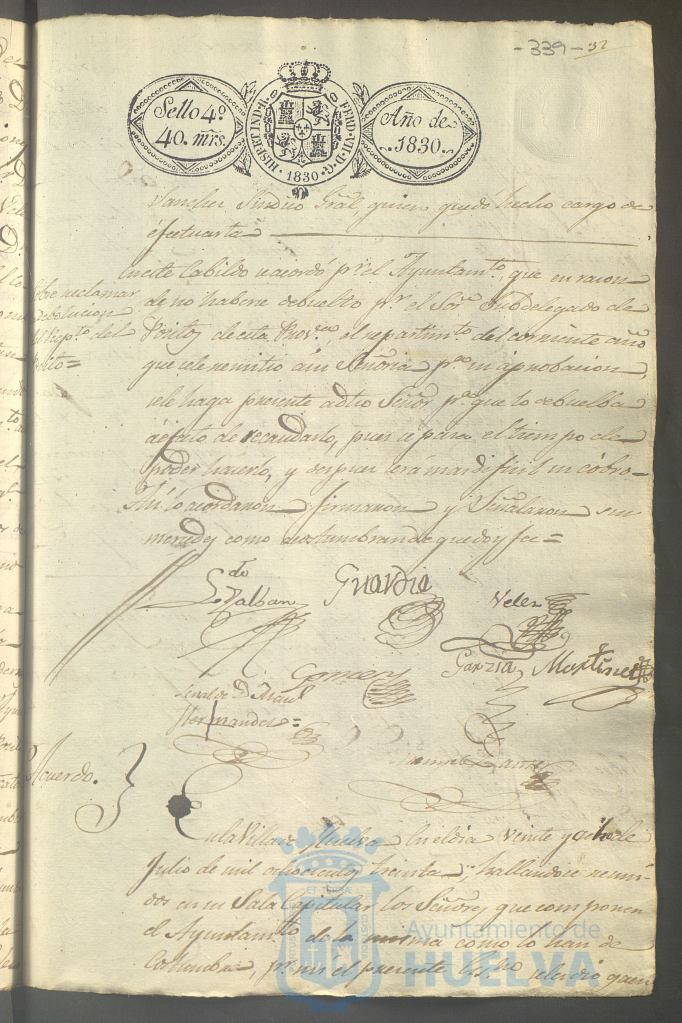 -339- 32
Sello 4º
40. mrs.
HISPET IND. R. FERD. VII. D. G.
1830.
Año de
1830.
Sanchez Sindico Gral, quien quedo hecho cargo de
efectuarla
En este Cabildo se acordó pr. el Ayuntamto, que en razon
Sobre reclamar
de no haberse debuelto pr. el Sor. Subdelegado de
debolucion
Positos de esta Prov.cia, el repartimto. del corriente año
del Repto. del
que se le remitio á su Señoria pa. su aprobacion,
Posito=
se le haga presente a dho Señor pa. que lo debuelba
á efecto de recaudarlo, pues se pasa el tiempo de
poder hacerlo, y despues sera mas dificil su cobro=
Así lo acordaron firmaron y Señalaron sus
mercedes como acostumbran de que doy fee=
Guardia
Velez
Gomez
Garzia Martinez
Señal de D. Manl
Hernandez=
Acuerdo.
En la Villa de Huelva En el dia veinte y ocho de
Julio de mil ochocientos treinta; hallandose reuni-
dos en su Sala Capitular los Señores que componen
el Ayuntamto de la misma como lo han de
Costumbre, pr. mi el presente Es.no se les dio quen
Ayuntamiento de
HUELVA